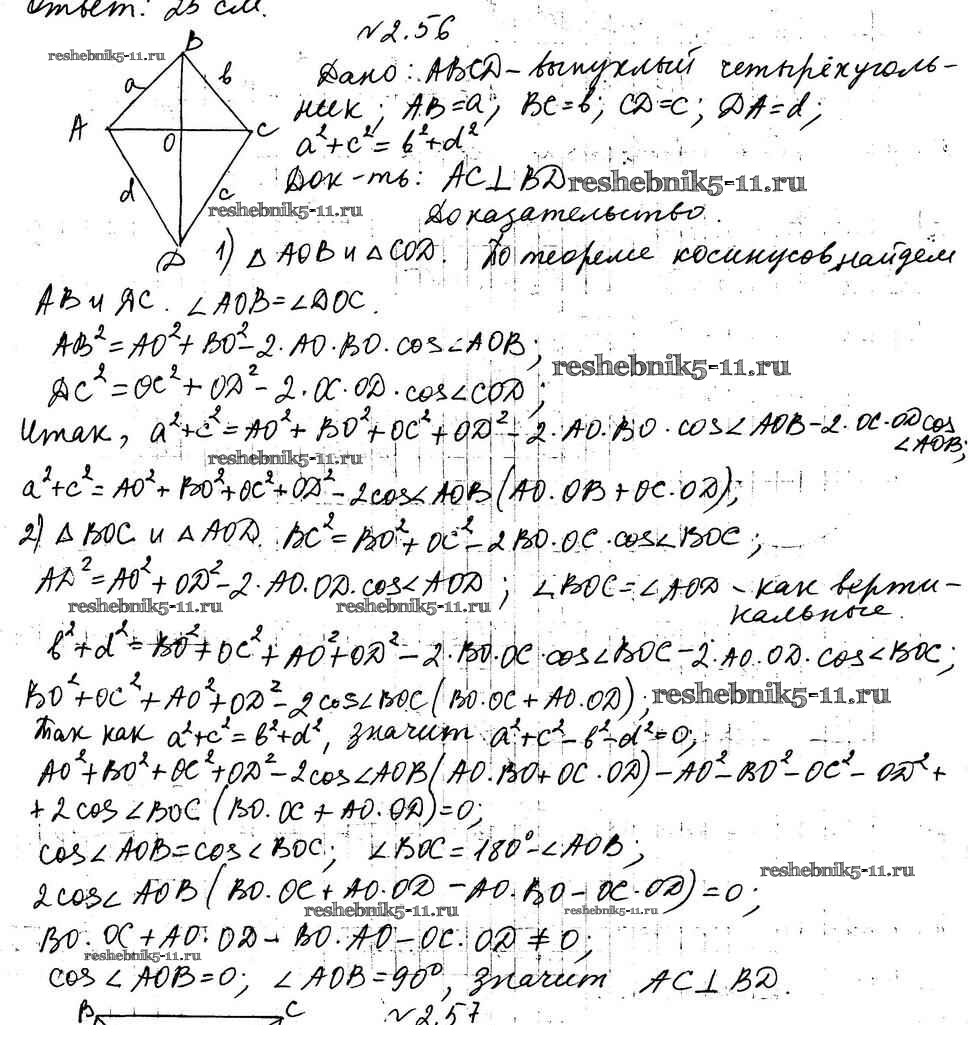 Ответ: 25 см.
№2.56
reshebnik5-11.ru
B
a
b
A
O
C
d
c
D
Дано: ABCD – выпуклый четырёхуголь-
ник; AB=a; BC=b; CD=c; DA=d;
a²+c²=b²+d²
Док-ть: AC⊥BD
reshebnik5-11.ru
reshebnik5-11.ru
Доказательство.
1) △AOB и △COD. По теореме косинусов найдём
AB и DC. ∠AOB=∠DOC.
AB²=AO²+BO²-2·AO·BO·cos∠AOB;
reshebnik5-11.ru
DC²=OC²+OD²-2·OC·OD·cos∠COD;
Итак, a²+c²=AO²+BO²+OC²+OD²-2·AO·BO·cos∠AOB-2·OC·OD cos
∠AOB;
reshebnik5-11.ru
a²+c²=AO²+BO²+OC²+OD²-2cos∠AOB(AO·OB+OC·OD);
2) △BOC и △AOD. BC²=BO²+OC²-2BO·OC·cos∠BOC;
AD²=AO²+OD²-2·AO·OD·cos∠AOD; ∠BOC=∠AOD – как верти-
кальные.
reshebnik5-11.ru
reshebnik5-11.ru
b²+d²=BO²+OC²+AO²+OD²-2·BO·OC·cos∠BOC-2·AO·OD·cos∠BOC;
BO²+OC²+AO²+OD²-2cos∠BOC(BO·OC+AO·OD);
reshebnik5-11.ru
Так как a²+c²=b²+d², значит a²+c²-b²-d²=0;
AO²+BO²+OC²+OD²-2cos∠AOB(AO·BO+OC·OD)-AO²-BO²-OC²-OD²+
+2cos∠BOC(BO·OC+AO·OD)=0;
cos∠AOB=cos∠BOC; ∠BOC=180°-∠AOB;
reshebnik5-11.ru
2cos∠AOB(BO·OC+AO·OD-AO·BO-OC·OD)=0;
reshebnik5-11.ru
reshebnik5-11.ru
BO·OC+AO·OD-BO·AO-OC·OD≠0;
reshebnik5-11.ru
cos∠AOB=0; ∠AOB=90°, значит AC⊥BD.
B
C
№2.57